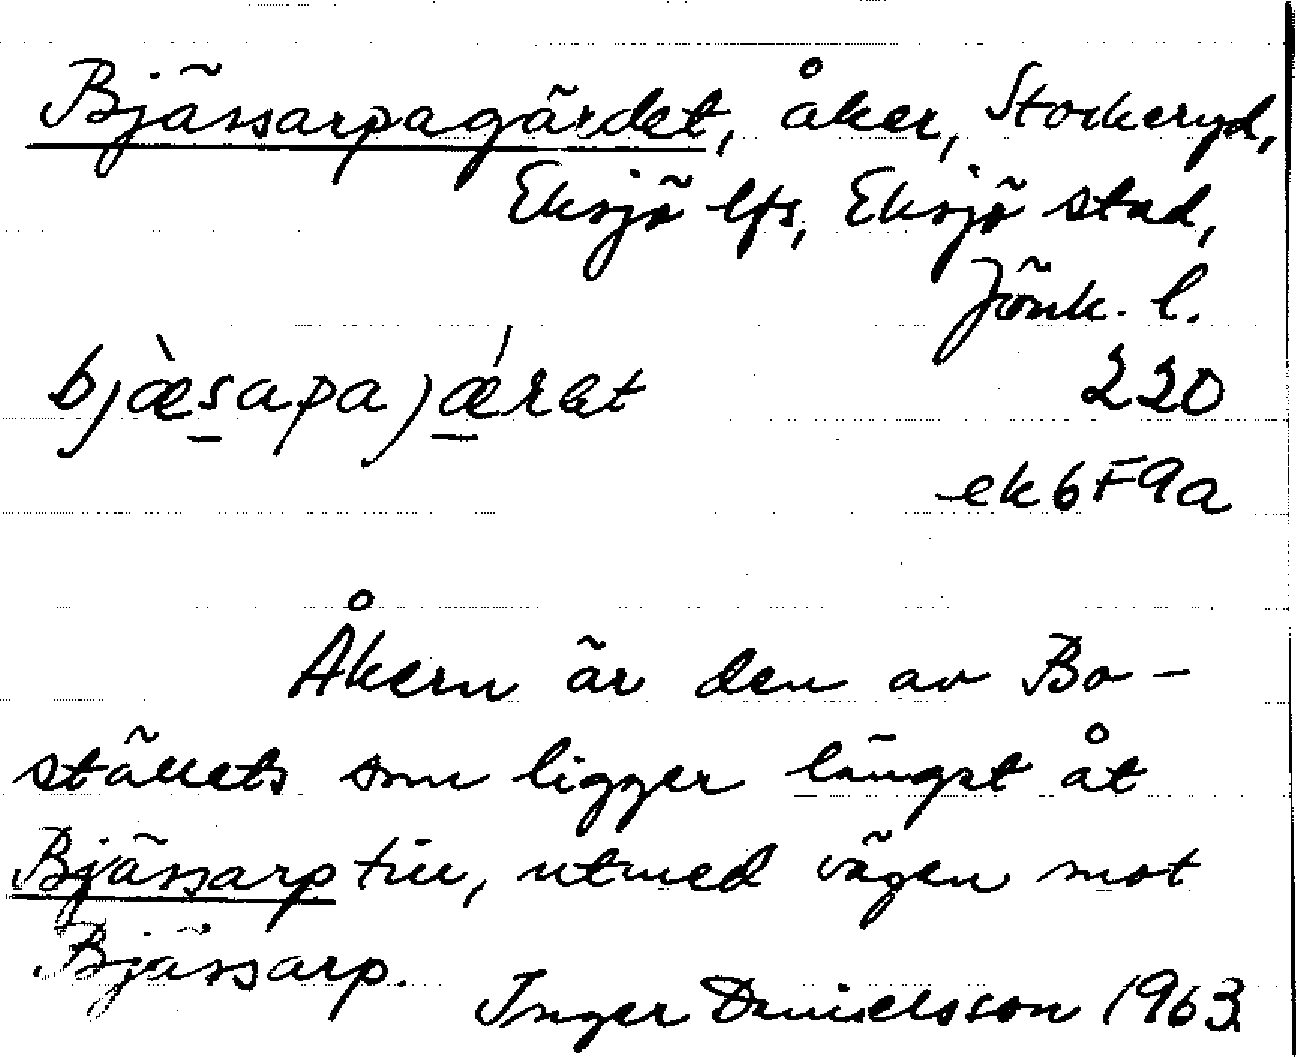 Bjässarpagärdet, åker, Stockeryd,
Eksjö lfs, Eksjö stad,
Jönk. l.
bjæ̀sapajǽrət 220
ek 6F9a
Åkern är den av Bo-
ställets som ligger längst åt
Bjässarp till, utmed vägen mot
Bjässarp.
Inger Danielsson 1963.